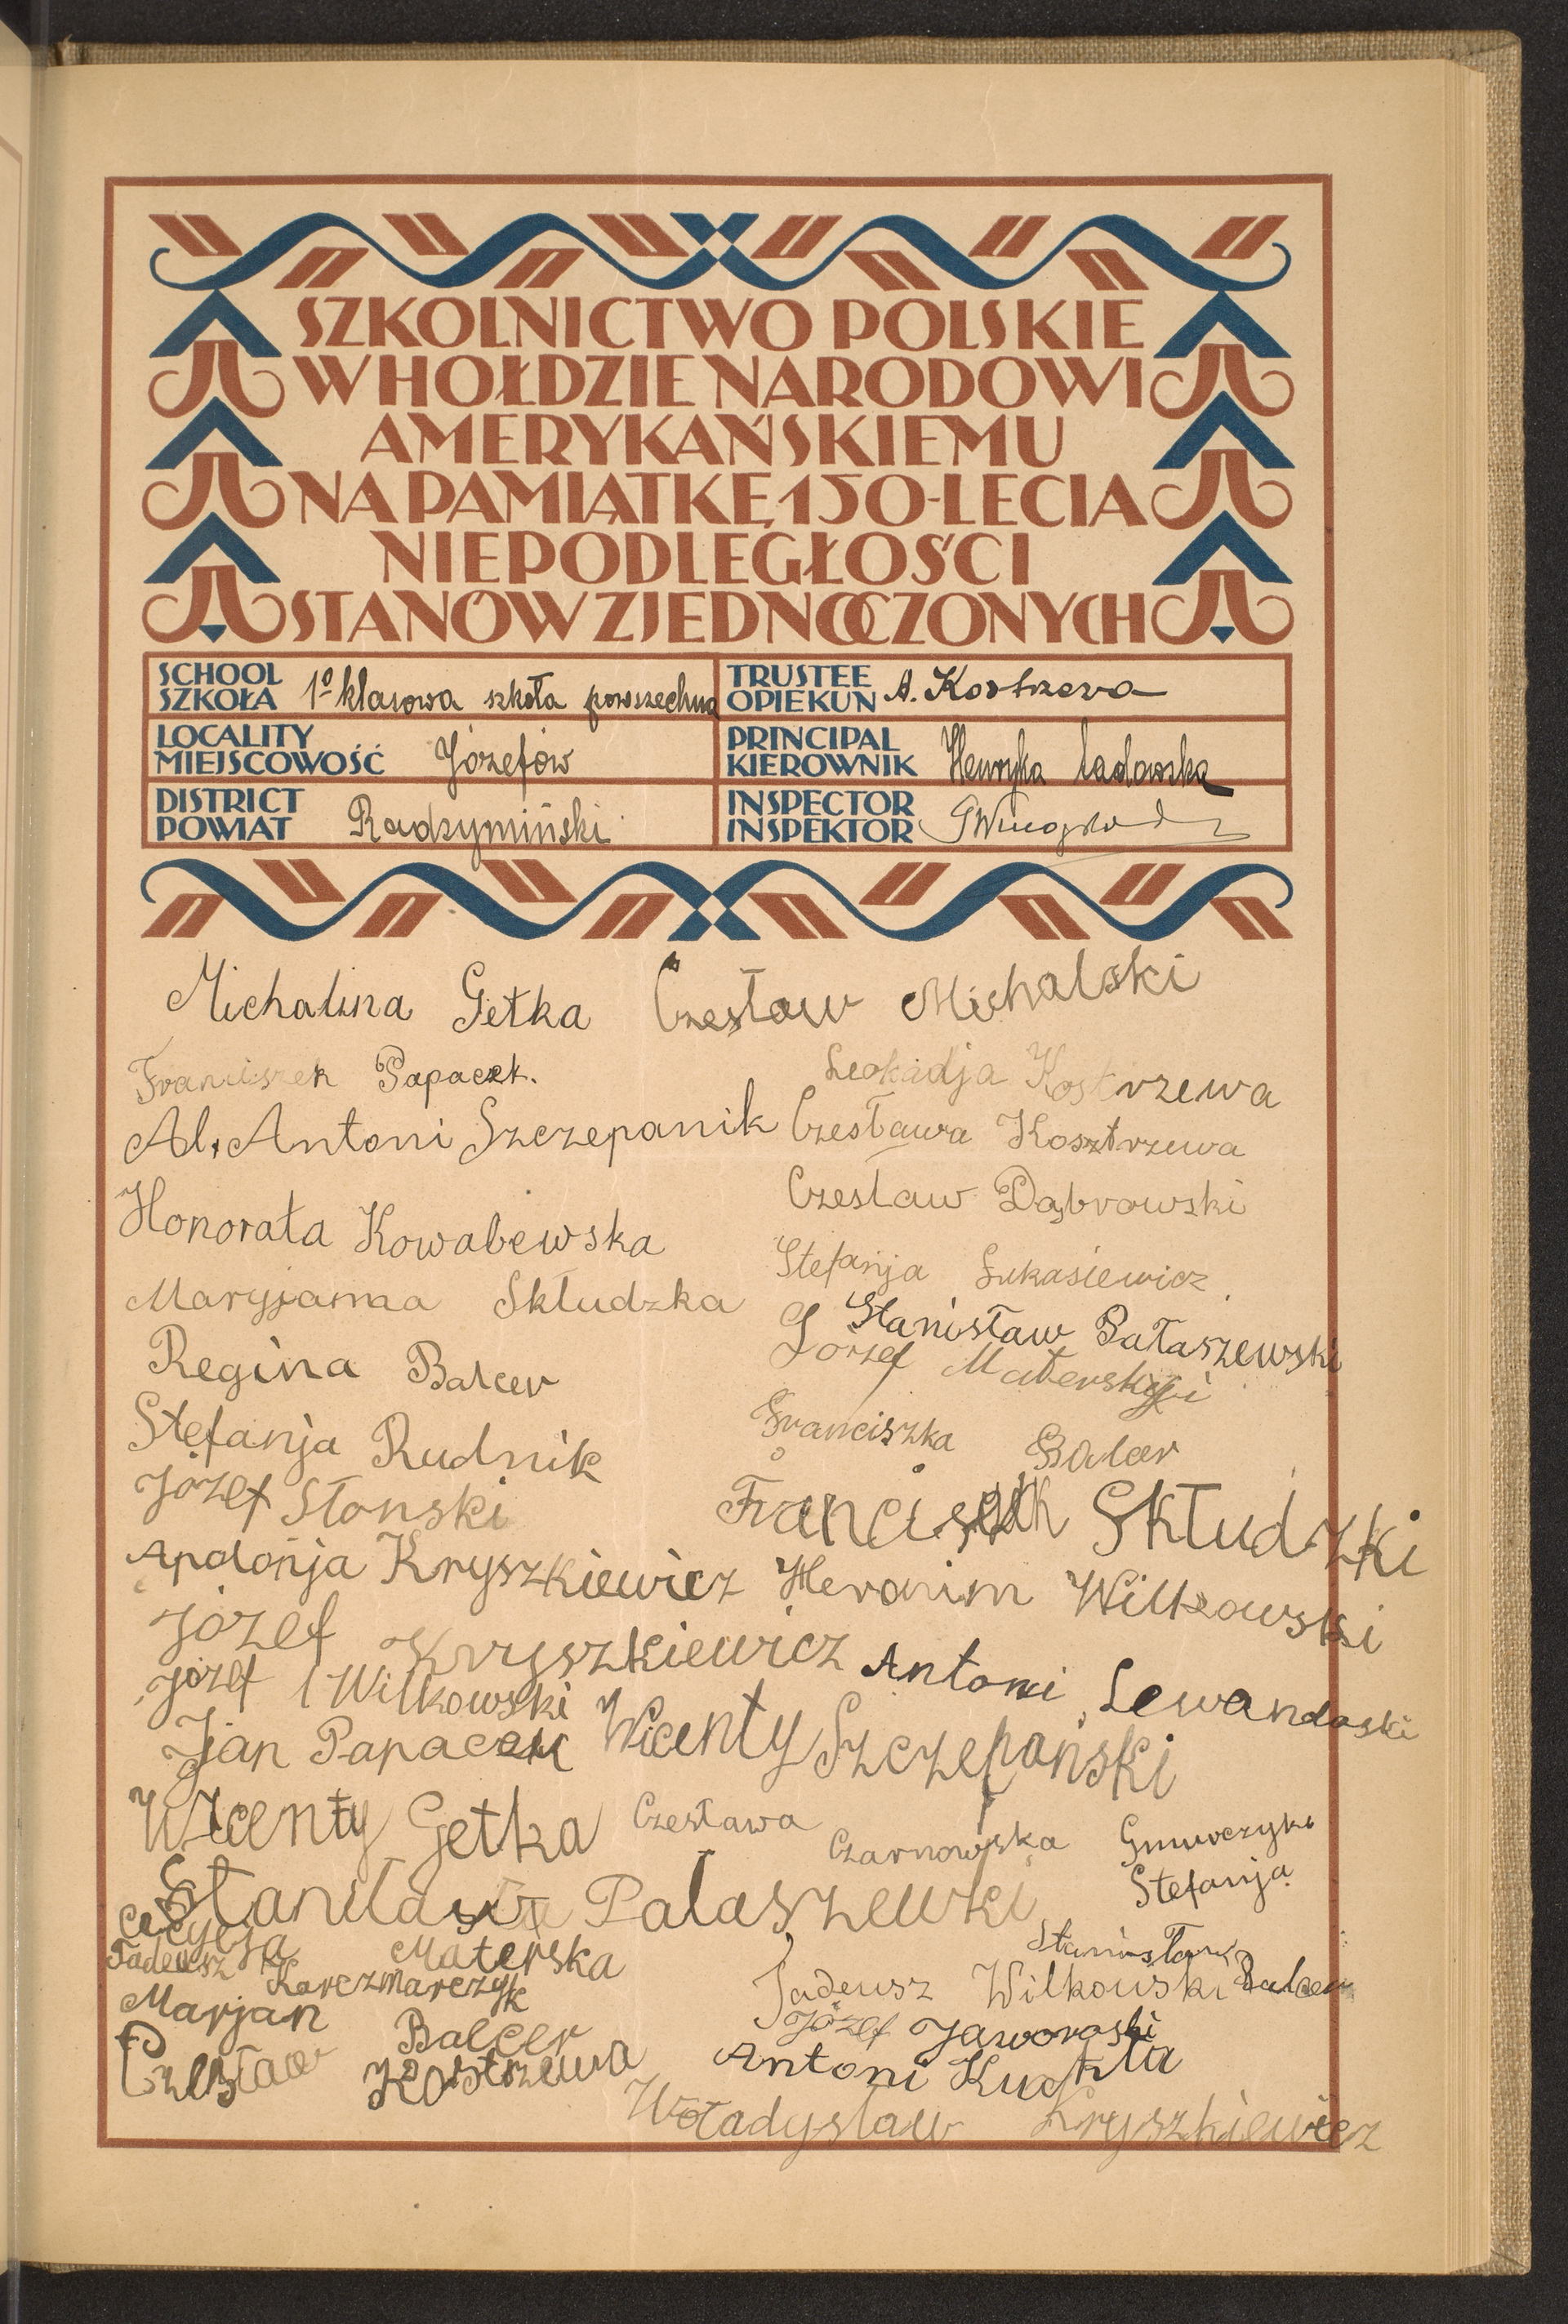 SZKOLNICTWO POLSKIE
W HOŁDZIE NARODOWI
AMERYKAŃSKIEMU
NA PAMIĄTKĘ 150-LECIA
NIEPODLEGŁOŚCI
STANÓW ZJEDNOCZONYCH
SCHOOL
SZKOŁA 1º klasowa szkoła powszechna
TRUSTEE
OPIEKUN A. Kostrzewa
LOCALITY
MIEJSCOWOŚĆ Józefów
PRINCIPAL
KIEROWNIK Henryka
DISTRICT
POWIAT Radzymiński
INSPECTOR
INSPEKTOR
Michalina Getka Czesław Michalski
Franciszek Papaczk.
Leokadja Kostrzewa
Al. Antoni Szczepanik Czesława Kosztrzewa
Czeslaw Dąbrowski
Honorata Kowabewska
Stefanja Łukasiewicz
Maryjanna Skłudzka
Stanisław Pałaszewski
Józef Materski
Regina Balcer
Franciszka Balcer
Stefanja Rudnik
Józef Słonski
Franciszek Skłudzki
Apolonja Kryszkiewicz Heronim Wilkowski
Józef Kryszkiewicz Antoni Lewandoski
Józef Wilkowski
Jan Papaczk Wicenty Szczepański
Wicenty Getka Czesława Czarnowska Gmurczyk
Stefanja
Stanisław Palaszewki
Cecyjlja Materska
Stanisław Balcer
Tadeusz Karczmarczyk
Tadeusz Wilkowski
Marjan Balcer
Józef Jaworoski
Czesław Kostrzewa
Antoni Kuchta
Władyslaw Kryszkiewicz